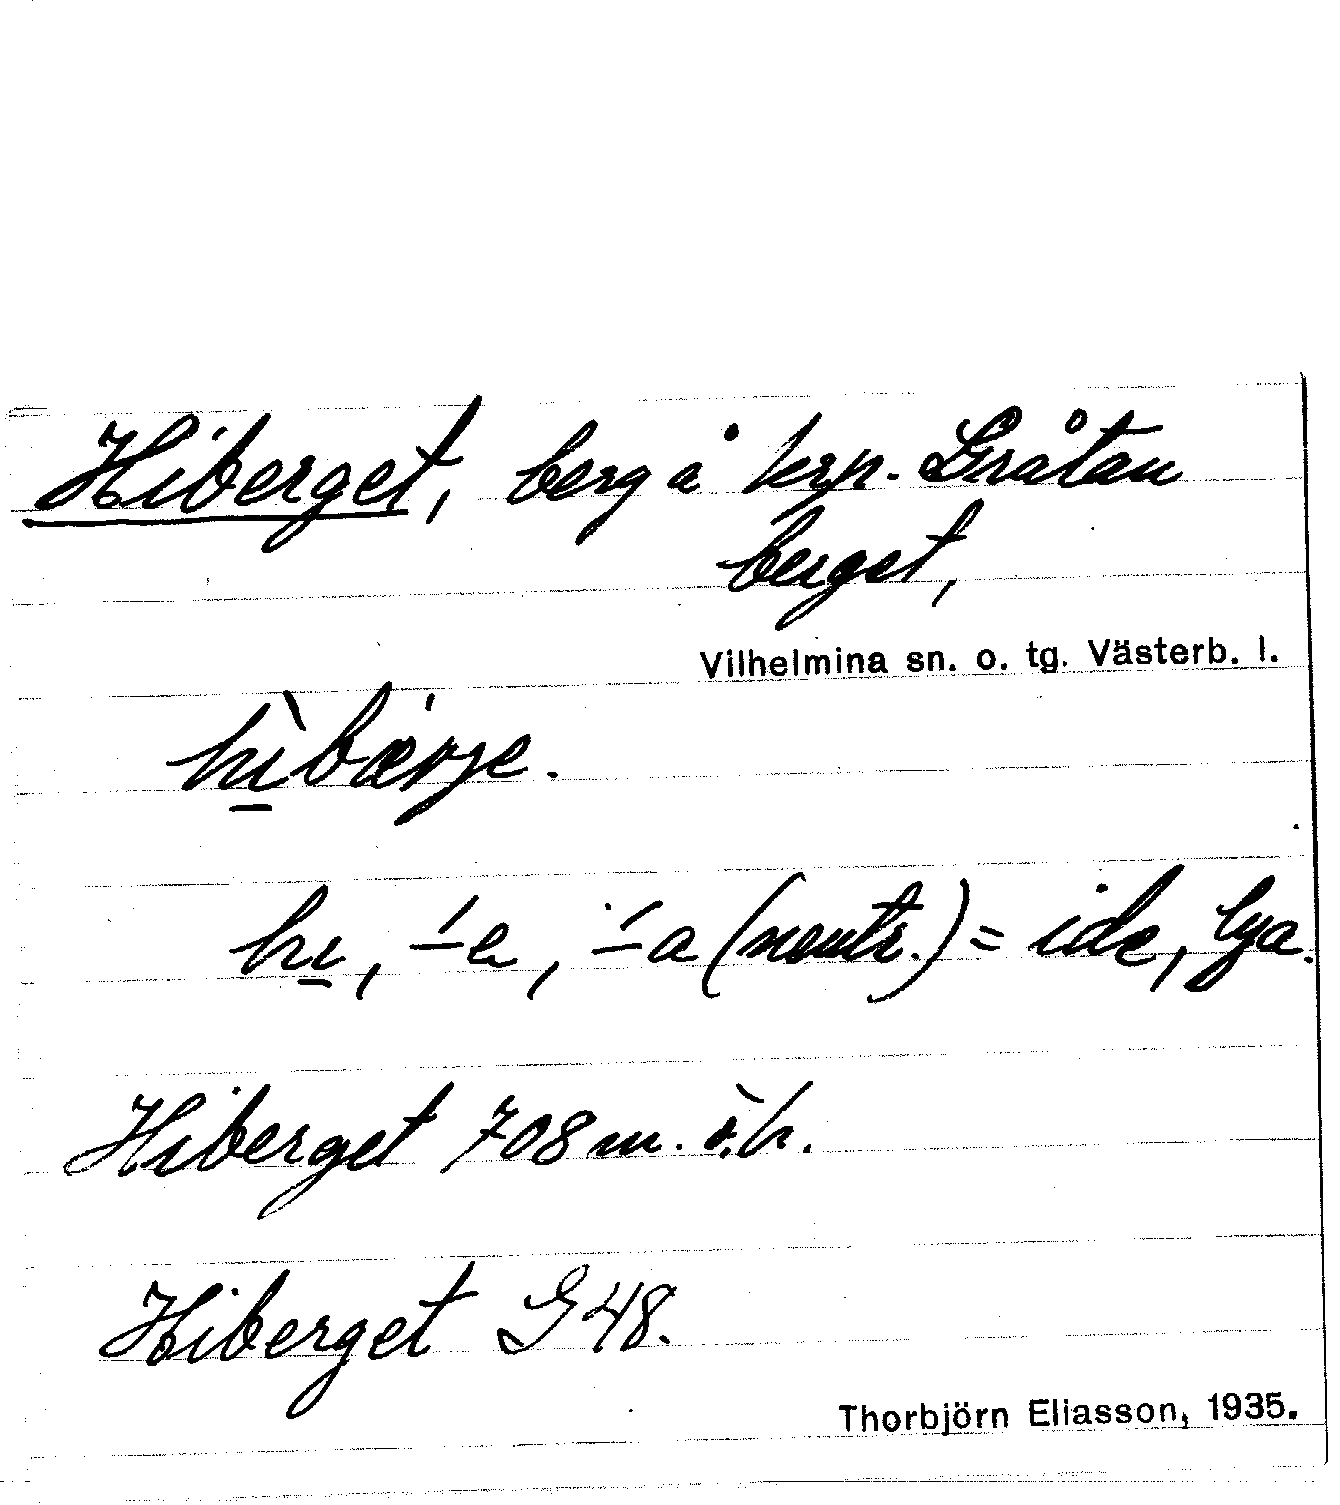 Hiberget, berg å krp. Gråtan
berget,
Vilhelmina sn. o. tg. Västerb. l.
hìbærje.
hi, ́-e, ́-a (neutr.) = ide, lya.
Hiberget 708 m. ö. h.
Hiberget G 48.
Thorbjörn Eliasson, 1935.